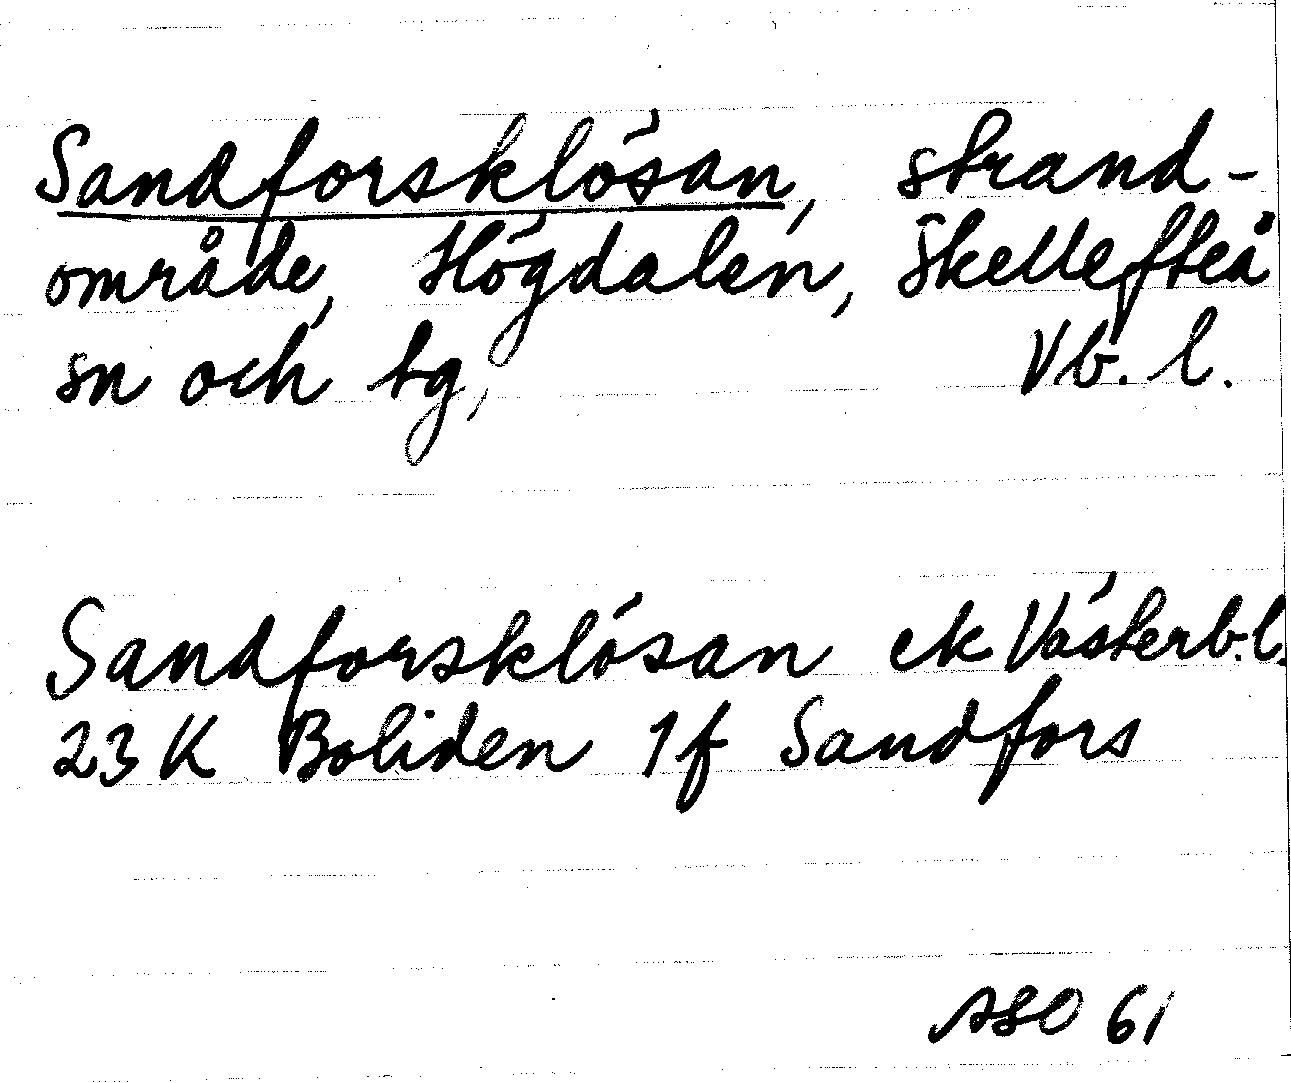 Sandforsklösan, strand-
område, Högdalen, Skellefteå
sn och tg, Vb. l.
Sandforsklösan ek Västerb. l.
23 K Boliden 1f Sandfors
ASO 61